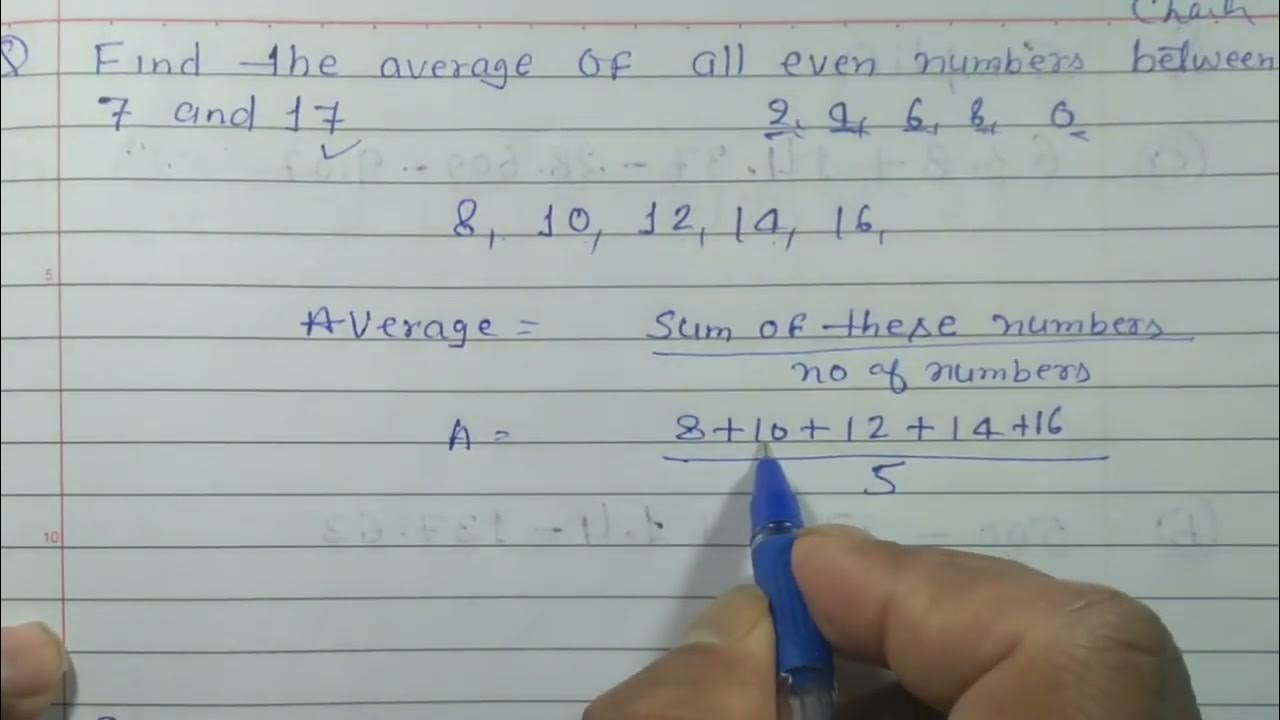 Chach
Q Find the average of all even numbers between
7 and 17
2, 4, 6, 8, 0
8, 10, 12, 14, 16,
Average = Sum of these numbers
no of numbers
A = 8+10+12+14+16
5
5
10